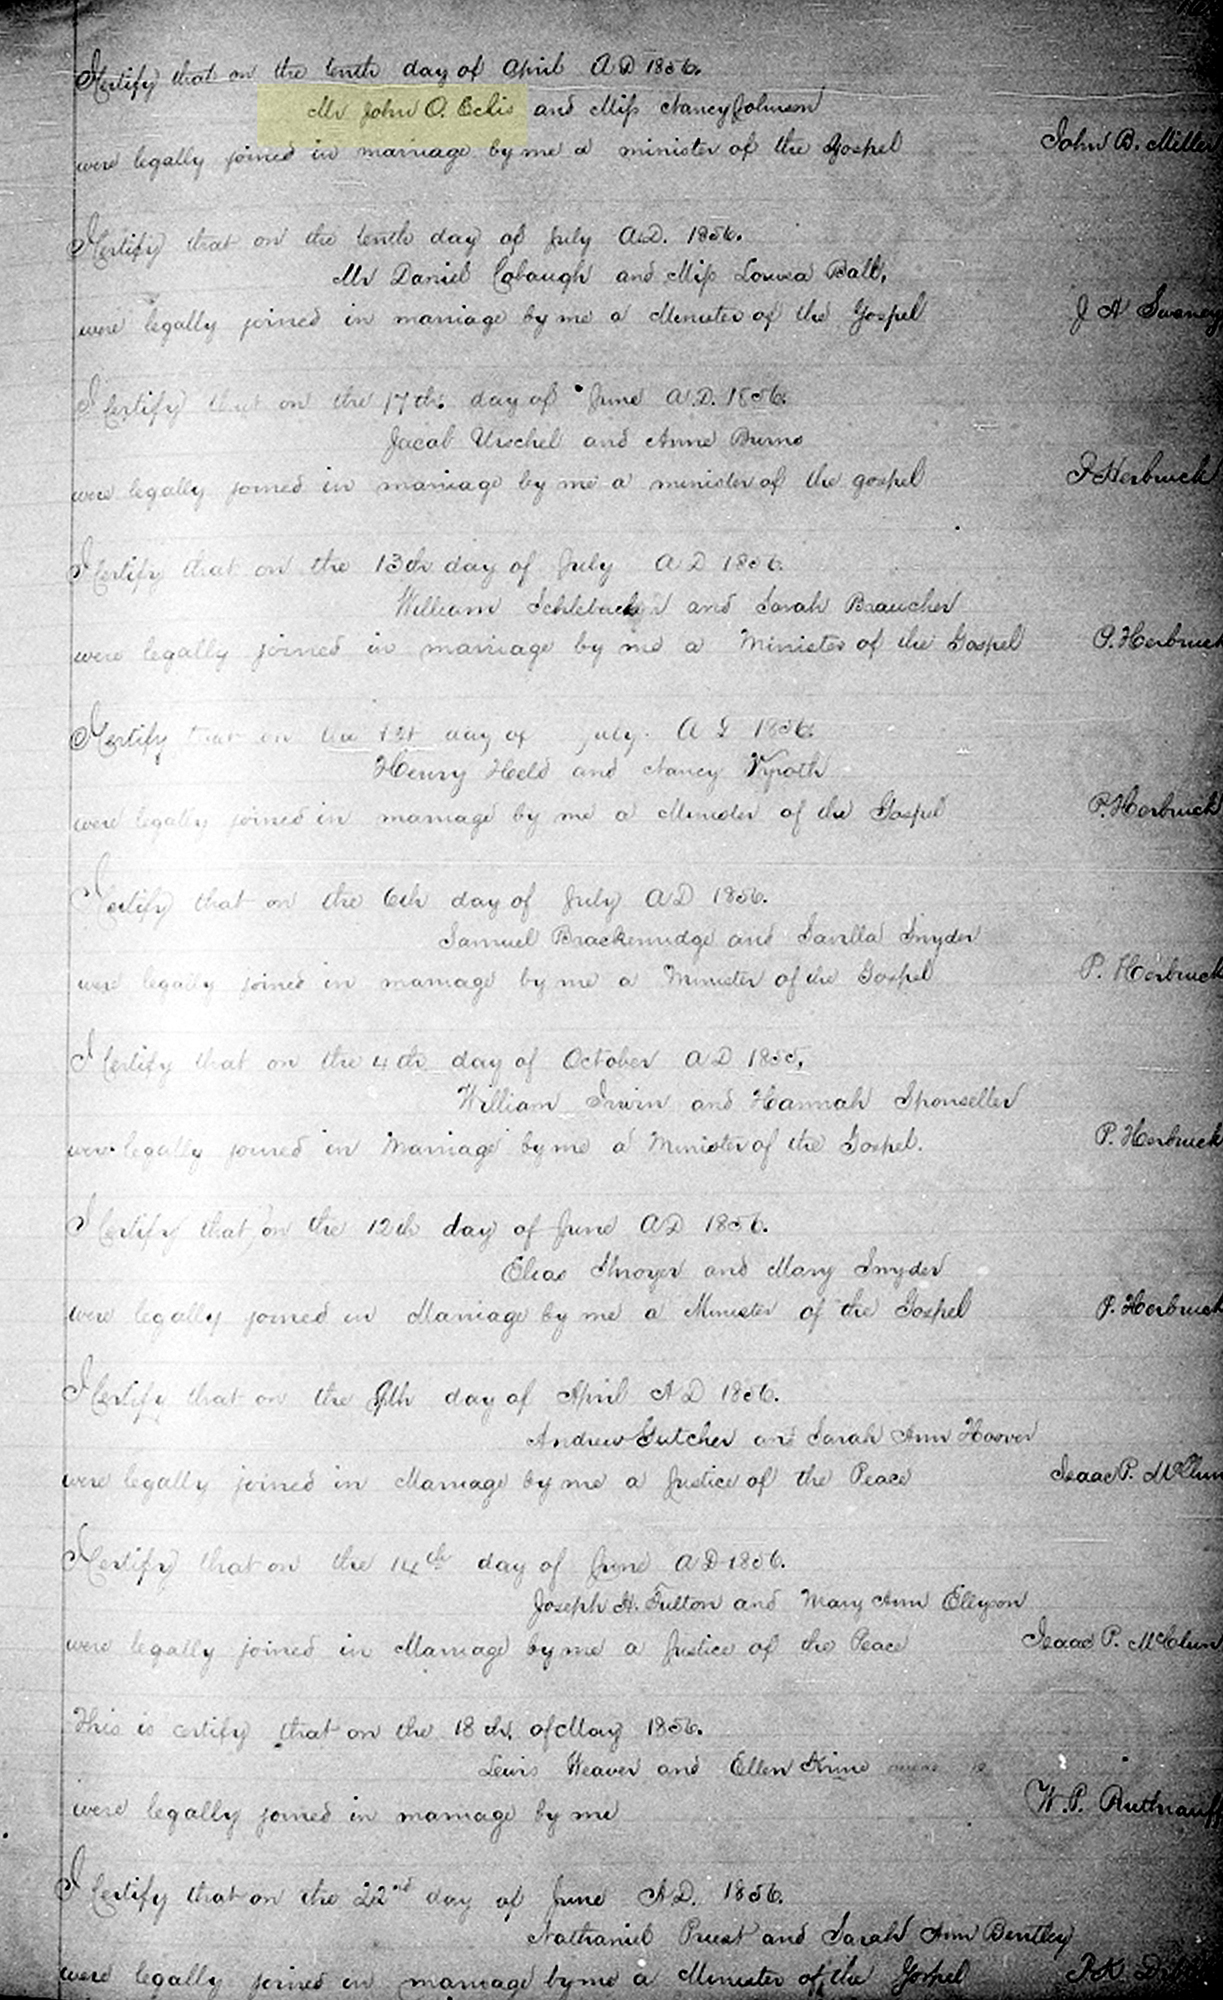 I Certify that on the tenth day of April A D 1856.
Mr John O. Eckis and Miss Nancy Johnson
were legally joined in marriage by me a minister of the Gospel John B. Miller
I Certify that on the tenth day of July A.D. 1856.
Mr Daniel Cobaugh and Miss Louvea Ball,
were legally joined in marriage by me a Minister of the Gospel J A Swaney
I Certify that on the 17th. day of June A.D. 1856.
Jacob Urschel and Anne Burns
were legally joined in marriage by me a minister of the gospel P Herbruck
I Certify that on the 13th day of July A D 1856.
William and Sarah Braucher
were legally joined in marriage by me a Minister of the Gospel P. Herbruck
I Certify that on the 1st day of July. A D 1856.
Henry Held and Nancy
were legally joined in marriage by me a Minister of the Gospel P. Herbruck
I Certify that on the 6th day of July A D 1856.
Samuel Brackenridge and Savilla Snyder
were legally joined in marriage by me a Minister of the Gospel P. Herbruck
I Certify that on the 4th day of October A D 1855,
William Irwin and Hannah Sponseller
were legally joined in Marriage by me a Minister of the Gospel. P. Herbruck
I Certify that on the 12th day of June A D 1856.
Elias Shroyer and Mary Snyder
were legally joined in Marriage by me a Minister of the Gospel P. Herbruck
I Certify that on the day of April A D 1856.
Andrew Gutcher and Sarah Ann Hoover
were legally joined in Marriage by me a Justice of the Peace Isaac P.
I Certify that on the 14th day of June A D 1856.
Joseph H. Fulton and Mary Ann Ellyson
were legally joined in Marriage by me a Justice of the Peace Isaac P.
This is certify that on the 18th. of May 1856.
Lewis Weaver and Ellen
were legally joined in marriage by me W. P. Ruthrauff
I Certify that on the 22nd day of June A.D. 1856.
Nathaniel Priest and Sarah Ann Bentley
were legally joined in marriage by me a Minister of the Gospel